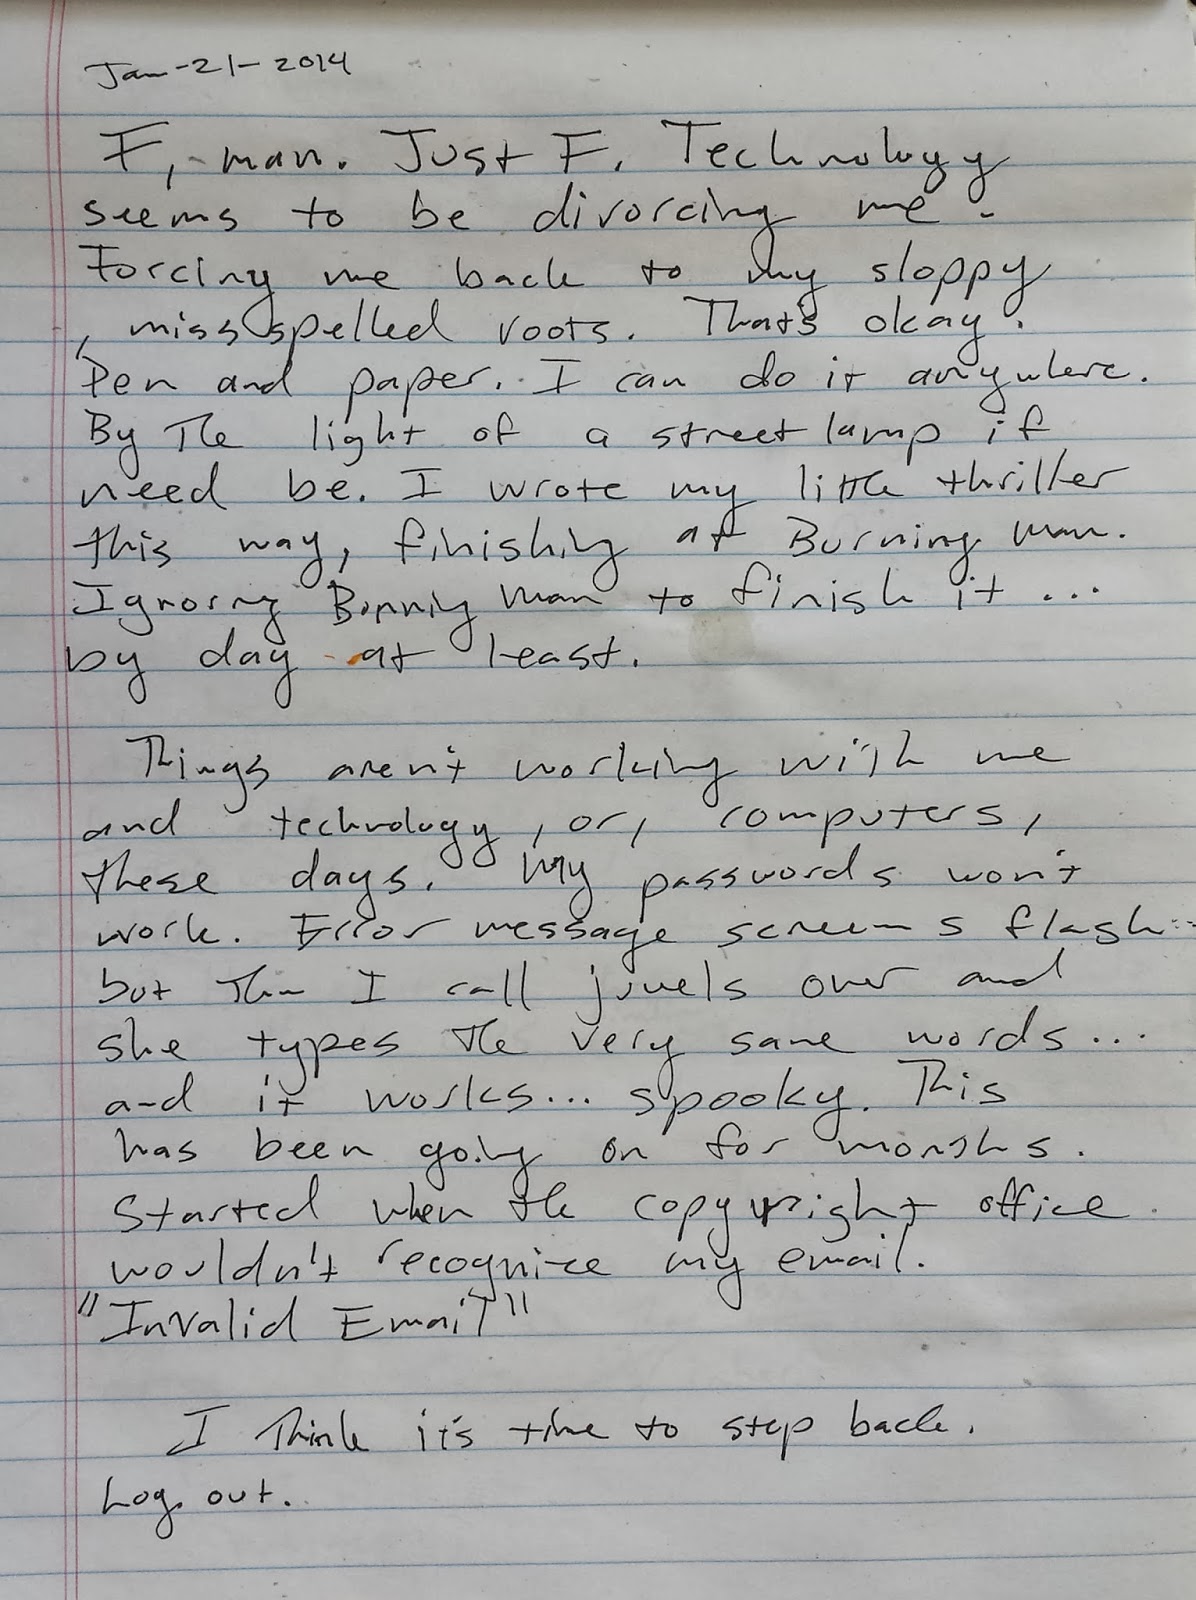 Jan-21-2014
F, man. Just F. Technology
seems to be divorcing me.
Forcing me back to my sloppy
, missspelled roots. That's okay.
Pen and paper. I can do it anywhere.
By the light of a street lamp if
need be. I wrote my little thriller
this way, finishing at Burning Man.
Ignoring Burning Man to finish it ...
by day at least.
Things aren't working with me
and technology, or, computers,
these days. My passwords won't
work. Error message screens flash...
but then I call jewels over and
she types the very same words...
and it works... spooky. This
has been going on for months.
Started when the copywright office
wouldn't recognize my email.
"Invalid Email"
I think it's time to step back.
Log out.